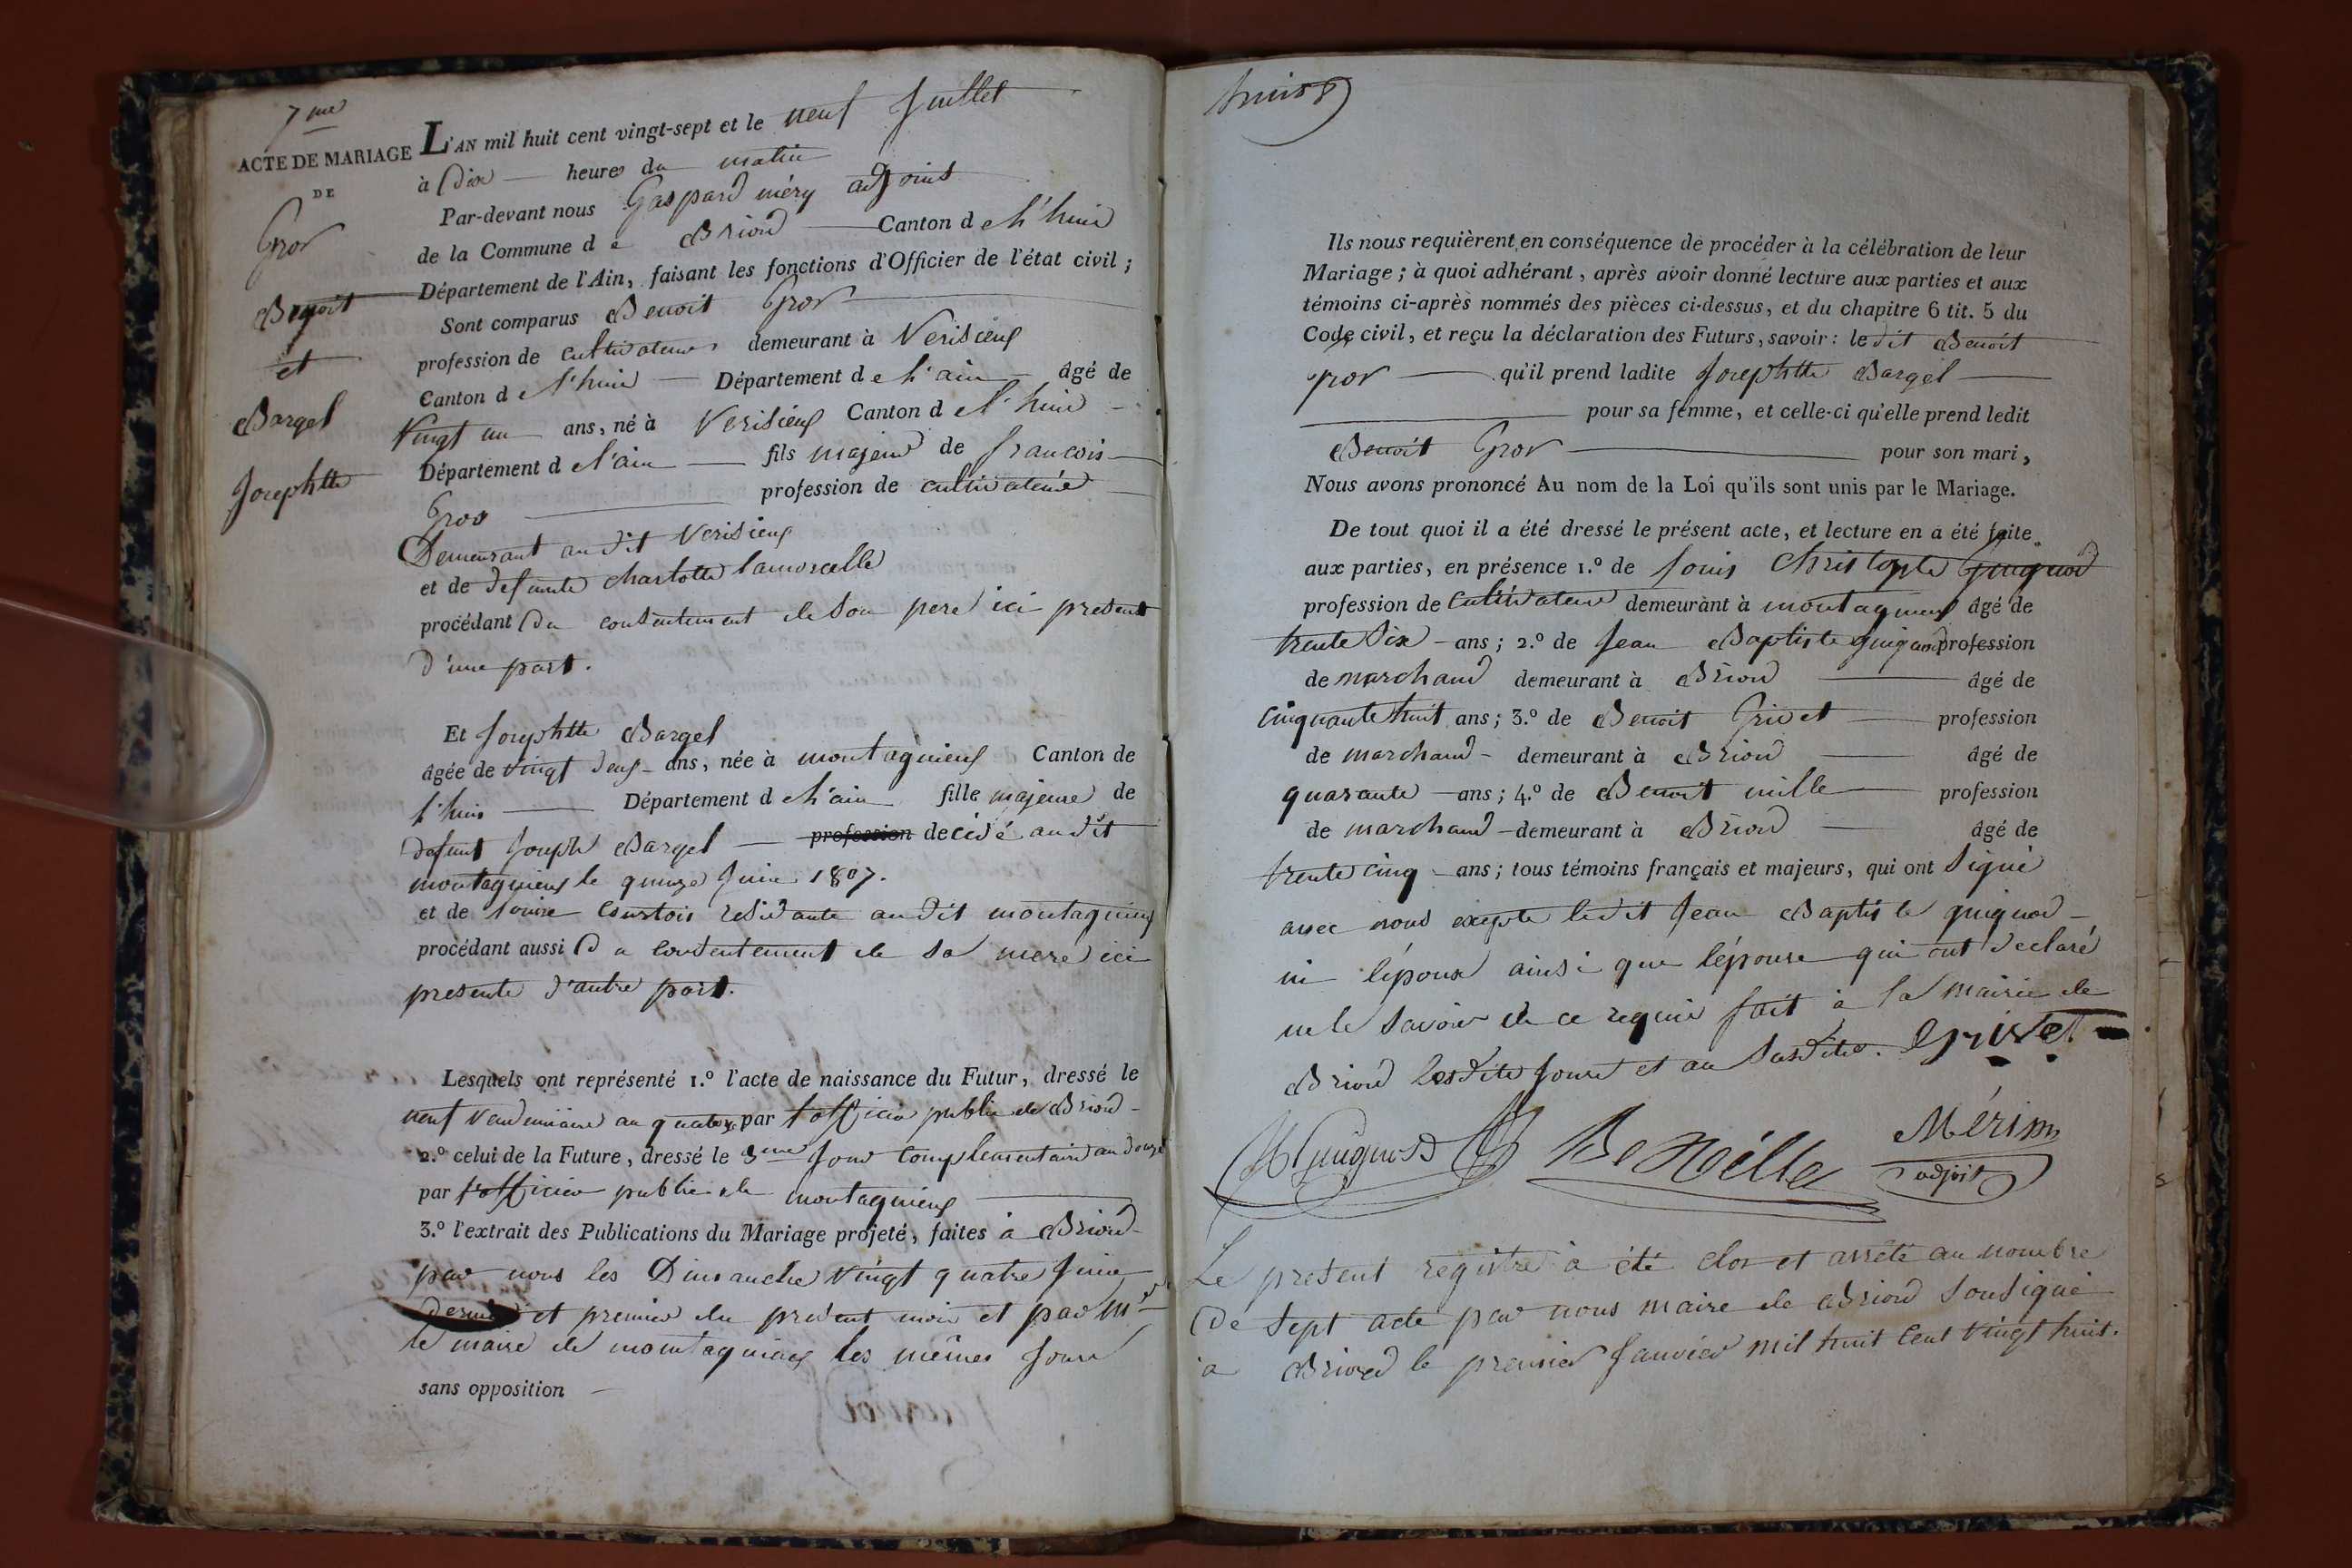 7me
ACTE DE MARIAGE
DE
Gros
Benoit
et
Bargel
Josephtte
L'AN mil huit cent vingt-sept et le neuf Juillet
à Dix heures du matin
Par-devant nous Gaspard méry adjoint
de la Commune de Briord Canton de l'huis
Département de l'Ain, faisant les fonctions d'Officier de l'état civil;
Sont comparus Benoit Gros
profession de cultivateur demeurant à Verisieux
Canton de l'huis Département de l'ain âgé de
Vingt un ans, né à Verisieux Canton de l'huis
Département de l'ain fils majeur de francois
Gros profession de cultivateur
Demeurant audit Verisieux
et de defunte charlotte lamorcelle
procédant Du consentement de son pere ici present
d'une part.
Et Josephtte Bargel
âgée de vingt deux ans, née à montagnieux Canton de
l'huis Département de l'ain fille majeure de
defunt Joseph Bargel profession décédé audit
montagnieux le quinze Juin 1807.
et de Courtois residante audit montagnieux
procédant aussi Du consentement de sa mere ici
presente d'autre part.
Lesquels ont représenté 1.º l'acte de naissance du Futur, dressé le
neuf vendemiaire an quatorze par l'officier public de Briord
2.º celui de la Future, dressé le 3me Jour complementaire an douze
par l'officier public de montagnieux
3.º l'extrait des Publications du Mariage projeté, faites à Briord
par nous les Dimanche vingt quatre Juin
dernier et premier du present mois et par Mr
le maire de montagnieux les mêmes Jours
sans opposition
Ils nous requièrent en conséquence de procéder à la célébration de leur
Mariage; à quoi adhérant, après avoir donné lecture aux parties et aux
témoins ci-après nommés des pièces ci-dessus, et du chapitre 6 tit. 5 du
Code civil, et reçu la déclaration des Futurs, savoir: ledit Benoit
gros qu'il prend ladite Josephtte Bargel
pour sa femme, et celle-ci qu'elle prend ledit
Benoit Gros pour son mari,
Nous avons prononcé Au nom de la Loi qu'ils sont unis par le Mariage.
De tout quoi il a été dressé le présent acte, et lecture en a été faite
aux parties, en présence 1.º de Louis Christophe Guignod
profession de Cultivateur demeurant à montagnieux âgé de
trente Six ans; 2.º de Jean Baptiste guignod profession
de marchand demeurant à Briord âgé de
cinquante huit ans; 3.º de Benoit Grivet profession
de marchand demeurant à Briord âgé de
quarante ans; 4.º de Benoit mille profession
de marchand demeurant à Briord âgé de
trente cinq ans; tous témoins français et majeurs, qui ont signé
avec nous excepte ledit Jean Baptiste guignod
ni l'époux ainsi que l'épouse qui ont déclaré
ne le savoir de ce requis fait à la mairie de
Briord lesdits Jours et an susdits. grivet
Guignod
adjoit
Le present registre à été clos et arrêté au nombre
De sept acte par nous maire de Briord soussigné
à Briord le premier Janvier mil huit cent vingt huit.